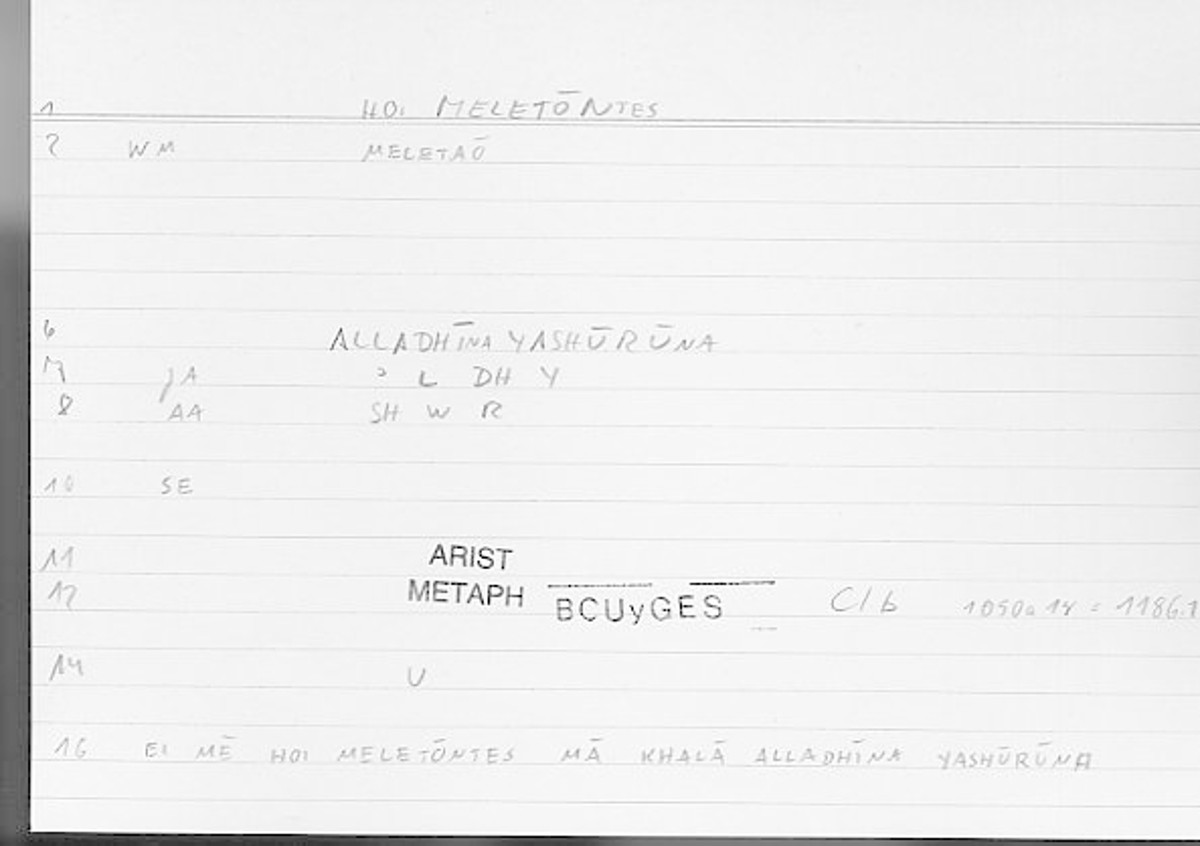 1 HOI MELETŌNTES
2 WM MELETAŌ
6 ALLADHĪNA YASHŪRŪNA
7 JA ʾ L DH Y
8 AA SH W R
10 SE
11 ARIST
12 METAPH BCUyGES C/b 1050a18 = 1186.1
14 U
16 EI MĒ HOI MELETŌNTES MĀ KHALĀ ALLADHĪNA YASHŪRŪNA